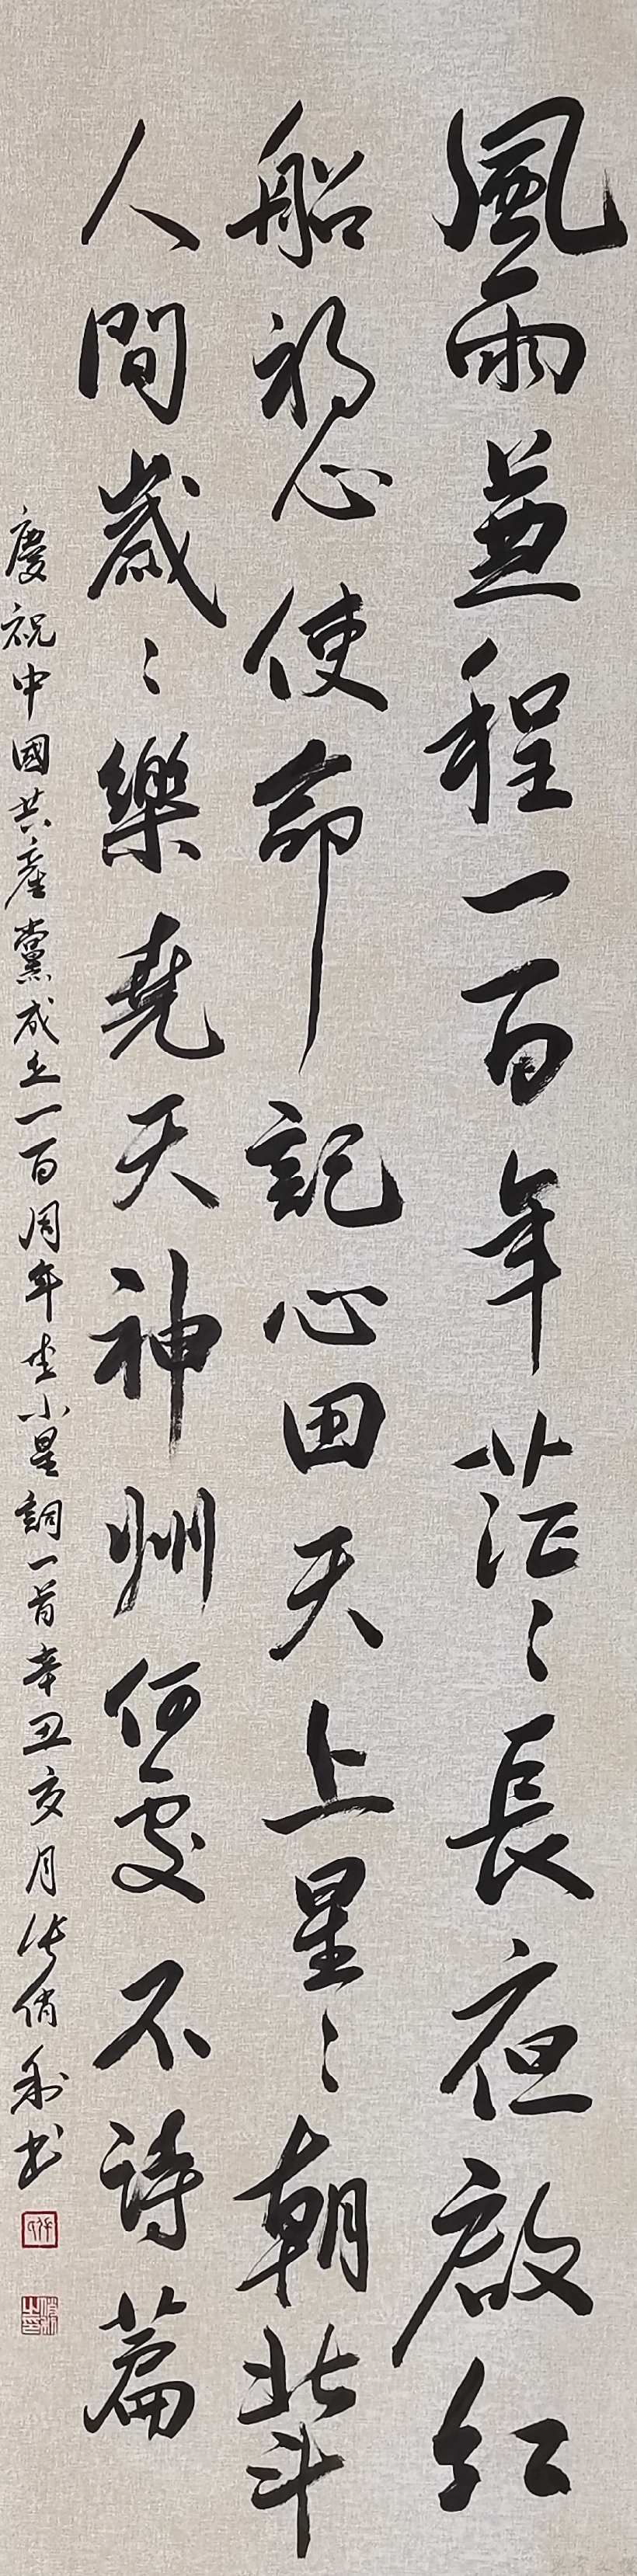 風雨兼程一百年茫〻長夜啟紅
船初心使命記心田天上星〻朝北斗
人間歲〻樂堯天神州何處不詩篇
慶祝中國共產黨成立一百周年 小星詞一首辛丑亥月 俏 書